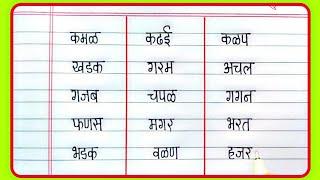 कमळ कढई कळप
खडक गरम अचल
गजब चपळ गगन
फणस मगर भरत
भडक वळण हजर